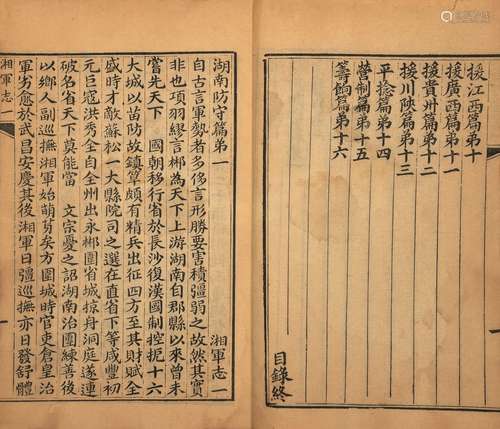 援江西篇第十
援廣西篇第十一
援貴州篇第十二
援川陝篇第十三
平捻篇第十四
營制篇第十五
籌餉篇第十六
目錄終
湖南防守篇第一
湘軍志一
自古言軍勢者多侈言形勝要害積彊弱之故然其實
非也項羽繆言郴為天下上游湖南自郡縣以來曾未
嘗先天下 國朝移行省於長沙復漢國制控扼十六
大城以苗防故鎮筸頗有精兵出征四方至其財賦全
盛時才敵蘇松一大縣院司之選在直省下等咸豐初
元巨寇洪秀全自全州出永郴圍省城掠舟洞庭遂連
破名省天下莫能當 文宗憂之詔湖南治團練善後
以鄉人副巡撫湘軍始萌芽矣方圍城時官吏倉皇治
軍劣愈於武昌安慶其後湘軍日彊巡撫亦日發舒體
湘軍志一
一